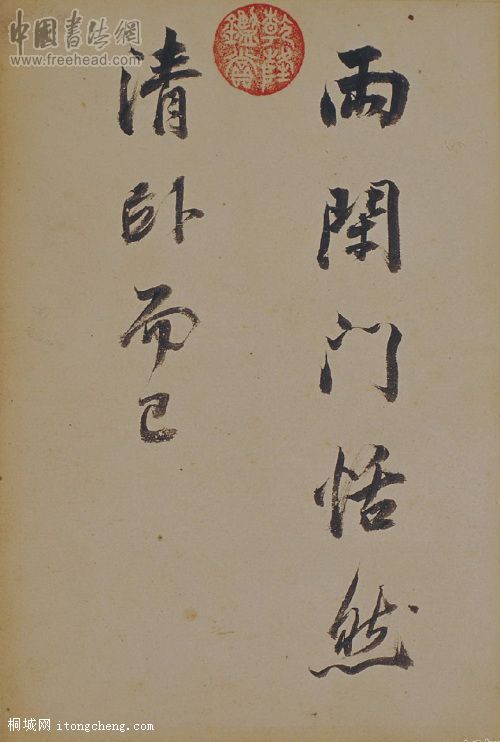 中國書法網
www.freehead.com
乾隆鑑賞
雨閉门恬然
清卧而已
桐城网 itongcheng.com